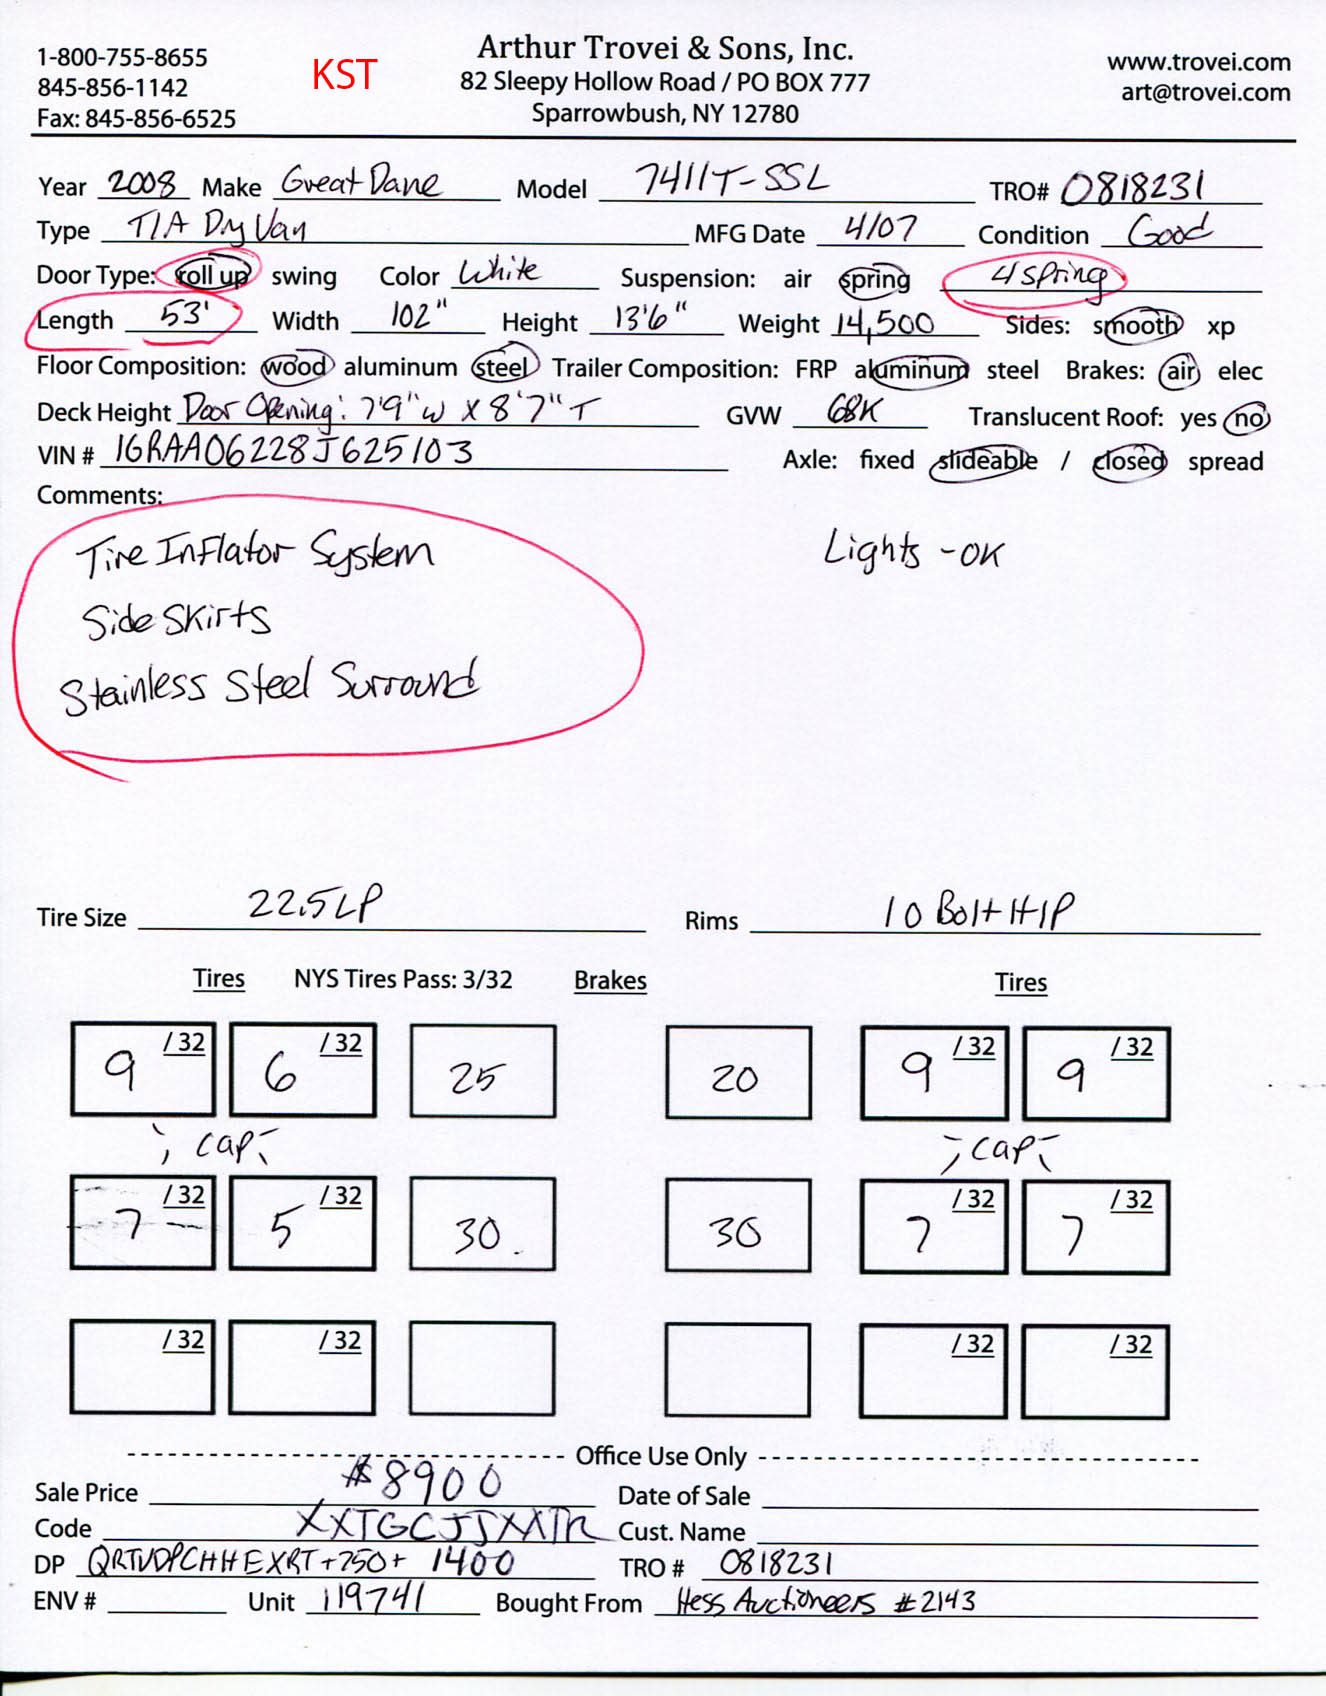 1-800-755-8655
845-856-1142
Fax: 845-856-6525
KST
Arthur Trovei & Sons, Inc.
82 Sleepy Hollow Road / PO BOX 777
Sparrowbush, NY 12780
www.trovei.com
art@trovei.com
Year 2008 Make Great Dane Model 7411T-SSL TRO# 0818231
Type T/A Dry Van MFG Date 4/07 Condition Good
Door Type: roll up swing Color White Suspension: air spring 4 spring
Length 53' Width 102" Height 13'6" Weight 14,500 Sides: smooth xp
Floor Composition: wood aluminum steel Trailer Composition: FRP aluminum steel Brakes: air elec
Deck Height Door Opening: 7'9" W X 8'7" T GVW 68K Translucent Roof: yes no
VIN # 1GRAA06228J625103 Axle: fixed slideable / closed spread
Comments:
Tire Inflator System Lights - OK
Side Skirts
Stainless Steel Surround
Tire Size 22.5 LP Rims 10 Bolt H/P
Tires NYS Tires Pass: 3/32 Brakes Tires
9 /32 6 /32 25 20 9 /32 9 /32
cap cap
7 /32 5 /32 30 30 7 /32 7 /32
/32 /32 /32 /32
Office Use Only
Sale Price $8900 Date of Sale
Code Cust. Name
DP QRTVDPCHHEXRT+750+ 1400 TRO # 0818231
ENV # Unit 119741 Bought From Hess Auctioneers #2143